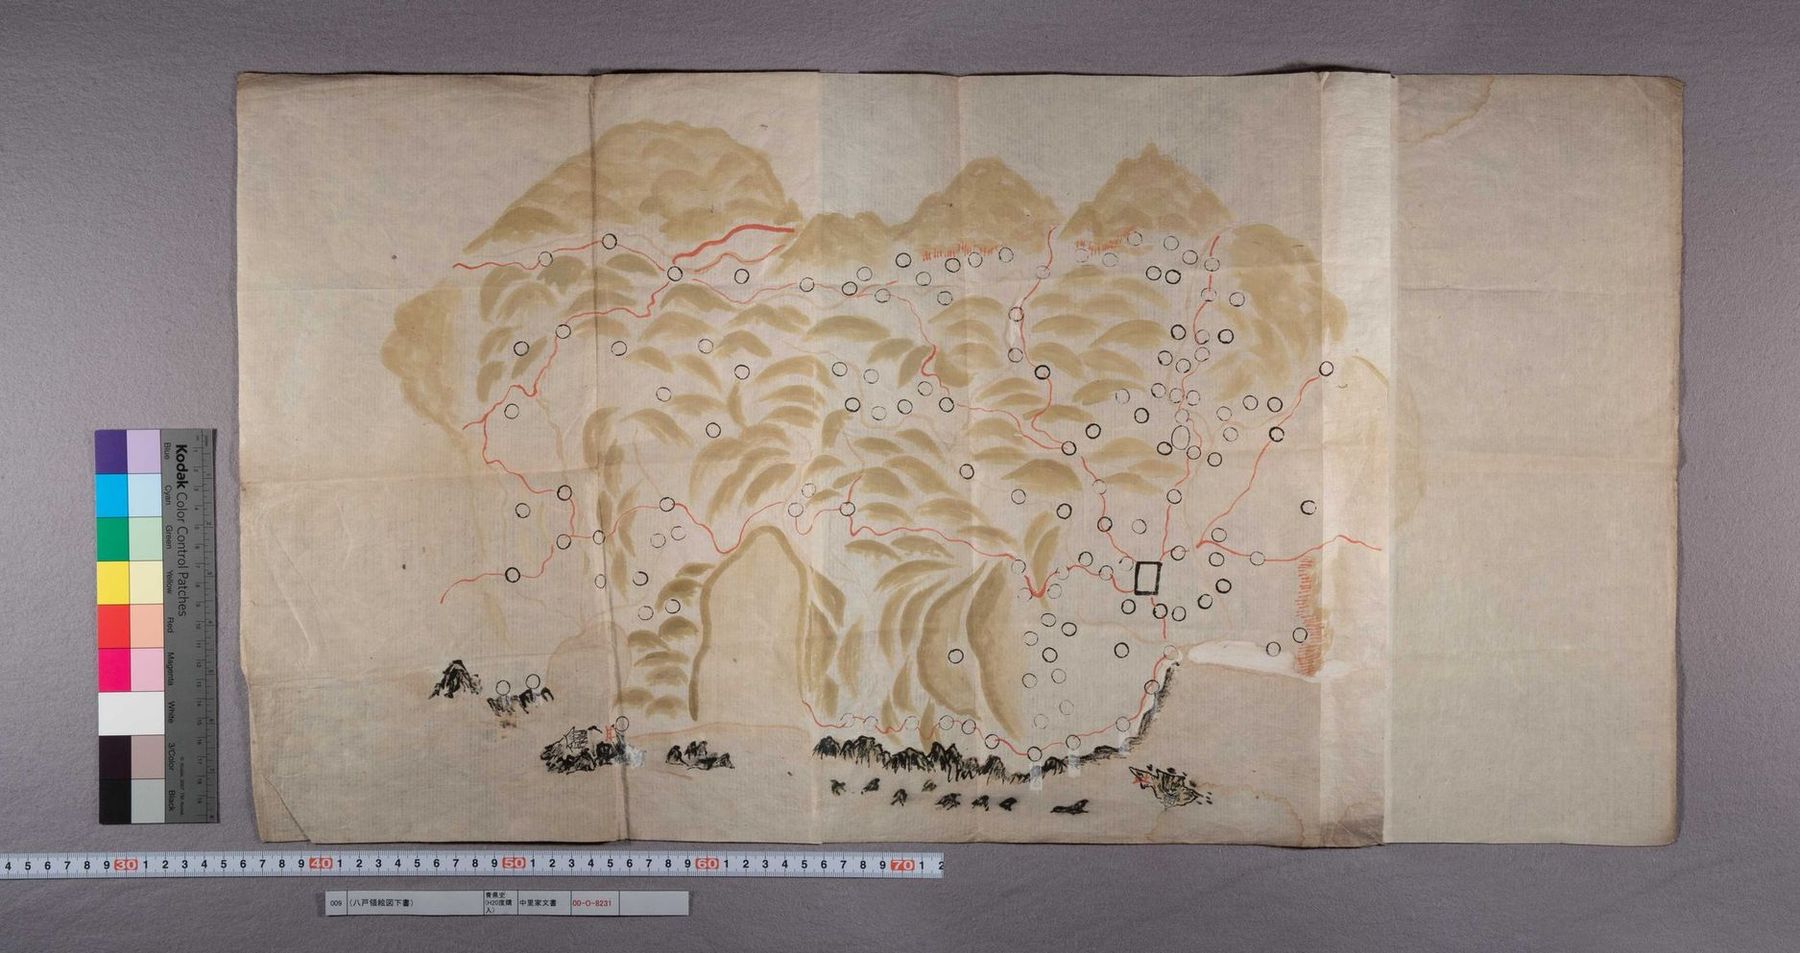 Kodak Color Control Patches
Blue Cyan Green Yellow Red Magenta White 3/Color Black
4 5 6 7 8 9 30 1 2 3 4 5 6 7 8 9 40 1 2 3 4 5 6 7 8 9 50 1 2 3 4 5 6 7 8 9 60 1 2 3 4 5 6 7 8 9 70 1 2
009 (八戸領絵図下書) 青県史(H20度購入) 中里家文書 00-O-8231